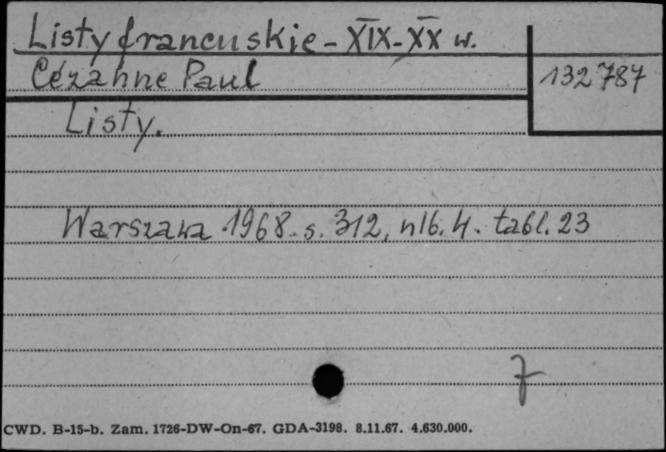 Listy francuskie - XIX-XX w.
Cézanne Paul
132787
Listy.
Warszawa 1968. s. 312, nlb. 4. tabl. 23
7
CWD. B-15-b. Zam. 1726-DW-On-67. GDA-3198. 8.11.67. 4.630.000.